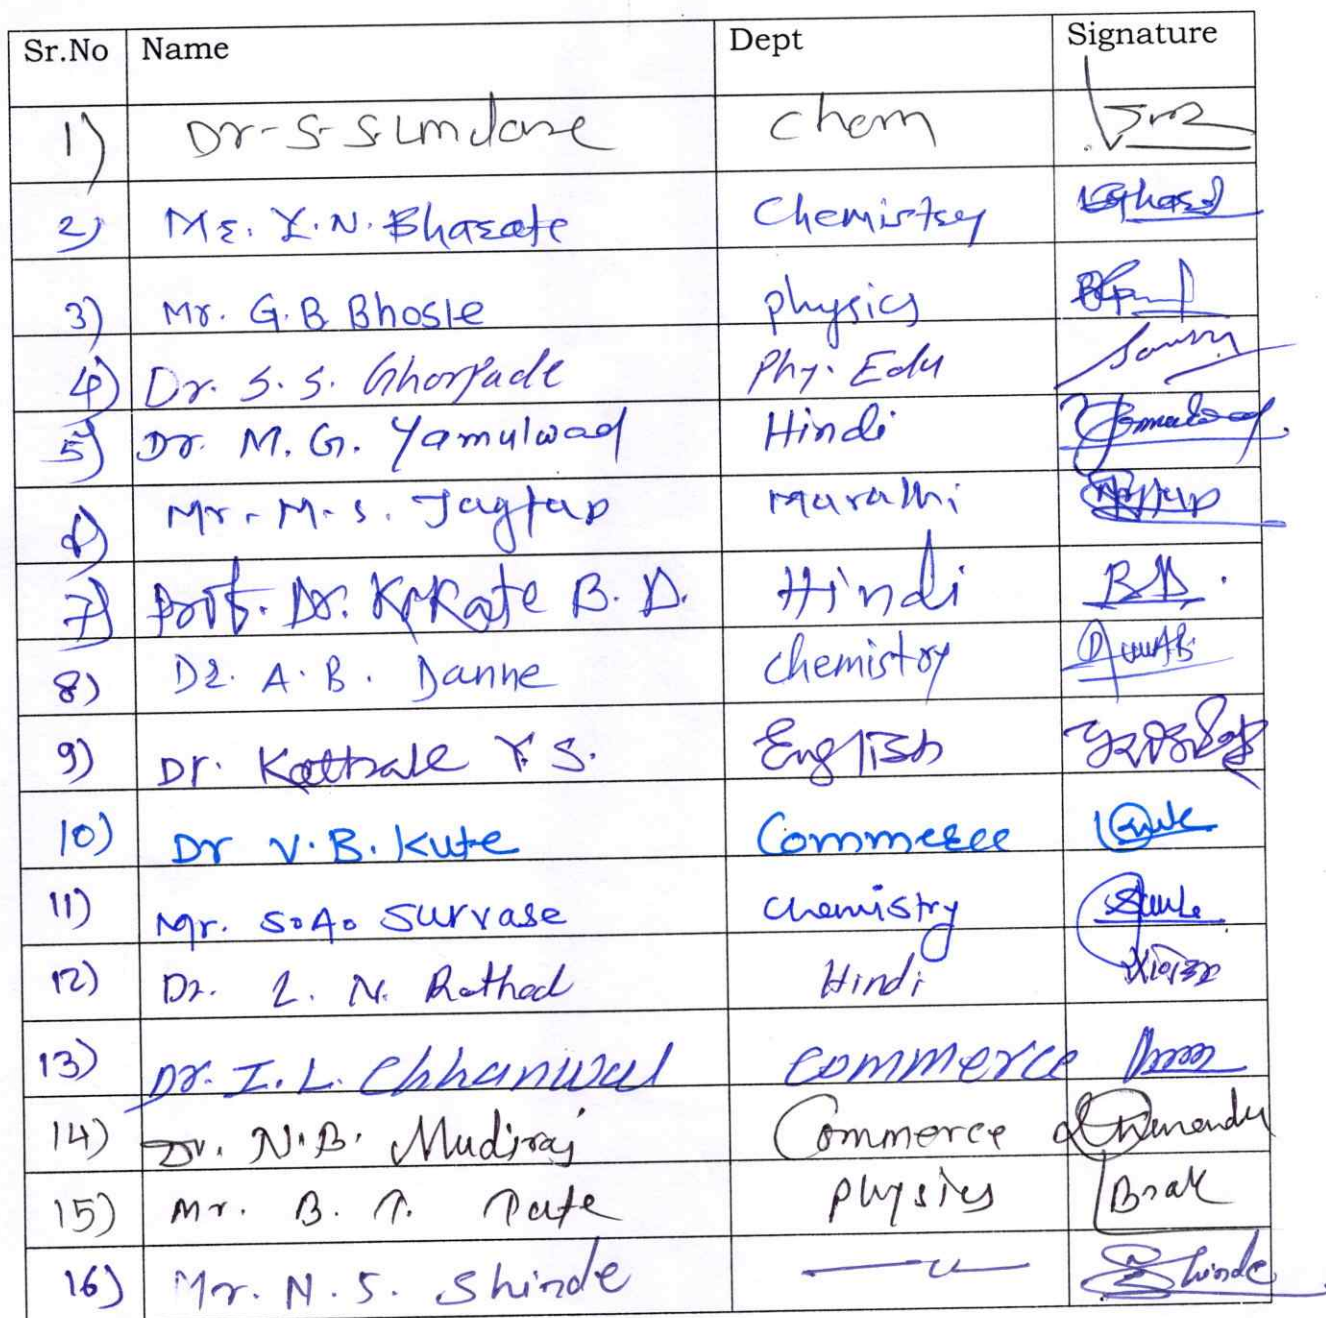 Sr.No Name Dept Signature
1) Dr-S-S Undare chem
2) Mr. Y.N. Bharate Chemistry
3) Mr. G.B Bhosle physics
4) Dr. S.S. Ghorpade Phy. Edu
5) Dr. M.G. Yamulwad Hindi Yamulwad
6) Mr. M.S. Jagtap Marathi Jagtap
7) Prof. Dr. Karkate B.D. Hindi B.D.
8) Dr. A.B. Danne chemistry
9) Dr. Kotthale Y.S. English
10) Dr V.B. Kute Commerce
11) Mr. S.A. Survase chemistry
12) Dr. L. N. Rathod Hindi
13) Dr. I.L. Chhanwal commerce
14) Dr. N.B. Mudiraj Commerce
15) Mr. B. T. Pate physics
16) Mr. N.S. Shinde —〃— Shinde